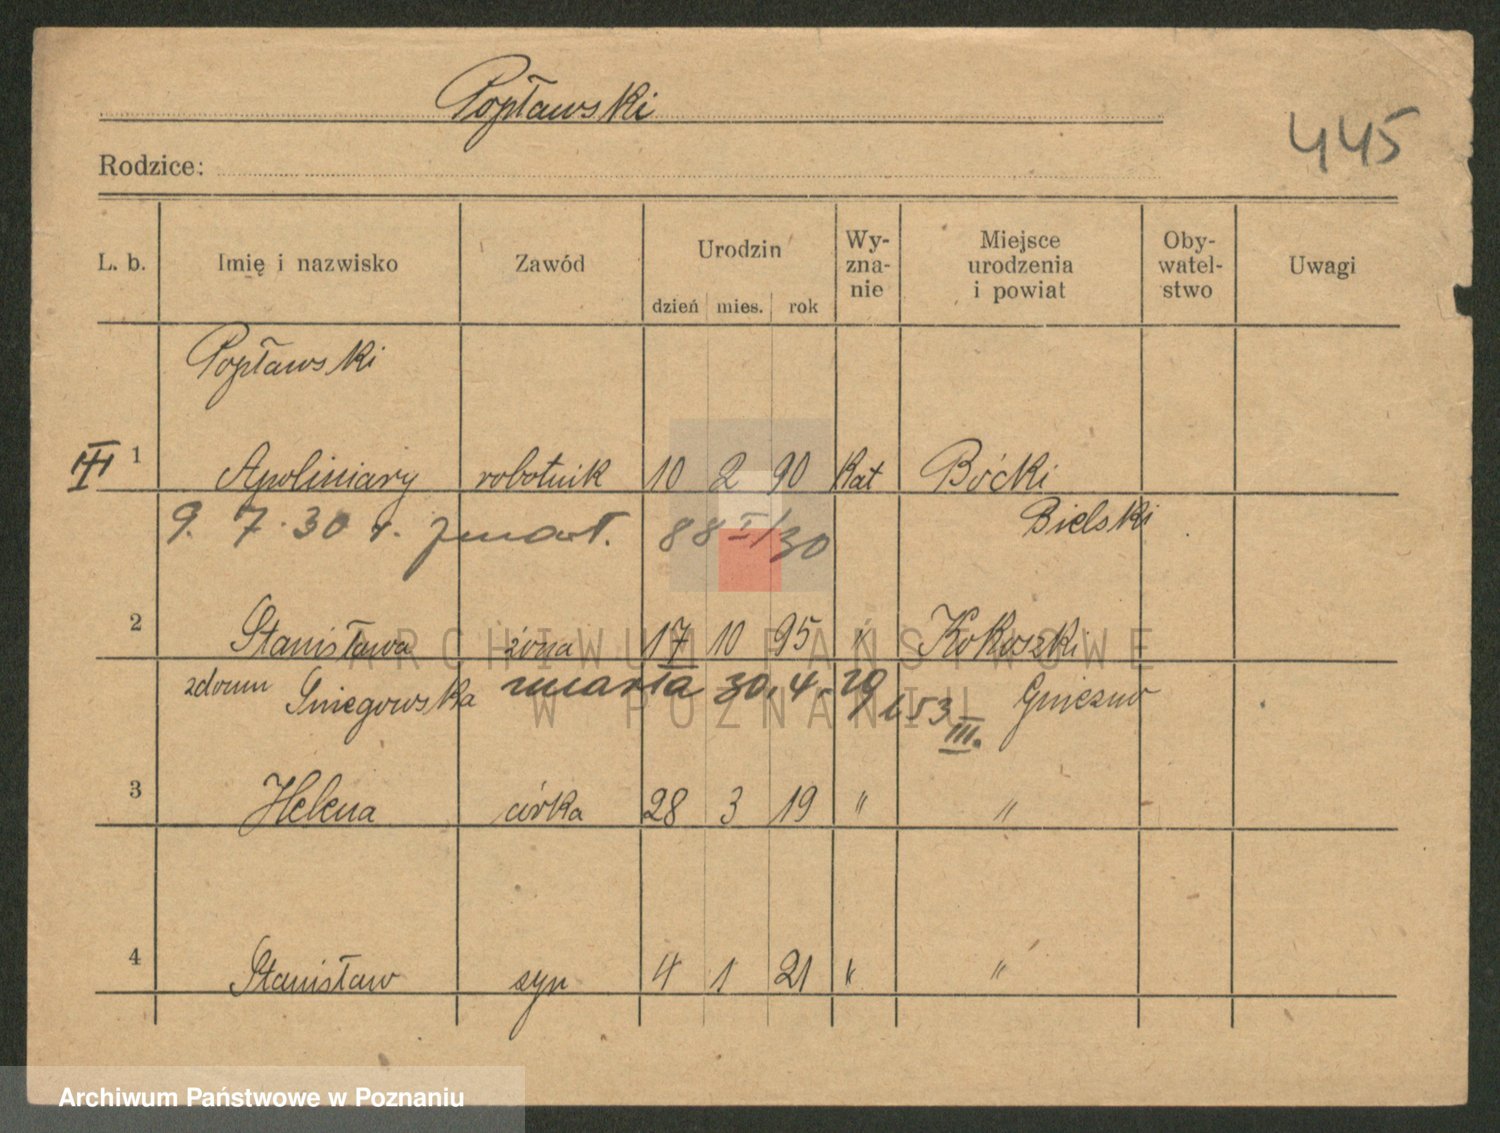 Popławski
445
Rodzice:
L. b. Imię i nazwisko Zawód Urodzin dzień mies. rok Wy-zna-nie Miejsce urodzenia i powiat Oby-watel-stwo Uwagi
Popławski
III 1 Apoliniary robotnik 10 2 90 Kat Boćki
9. 7. 30 r. zmarł. 88 I/30 Bielski
2 Stanisława żona 17 10 95 " Kokoszki
zdomu Śniegowska zmarła 30. 4. 29 653 III. Gniezno
3 Helena córka 28 3 19 " "
4 Stanisław syn 4 1 21 " "
ARCHIWUM PAŃSTWOWE
W POZNANIU
Archiwum Państwowe w Poznaniu